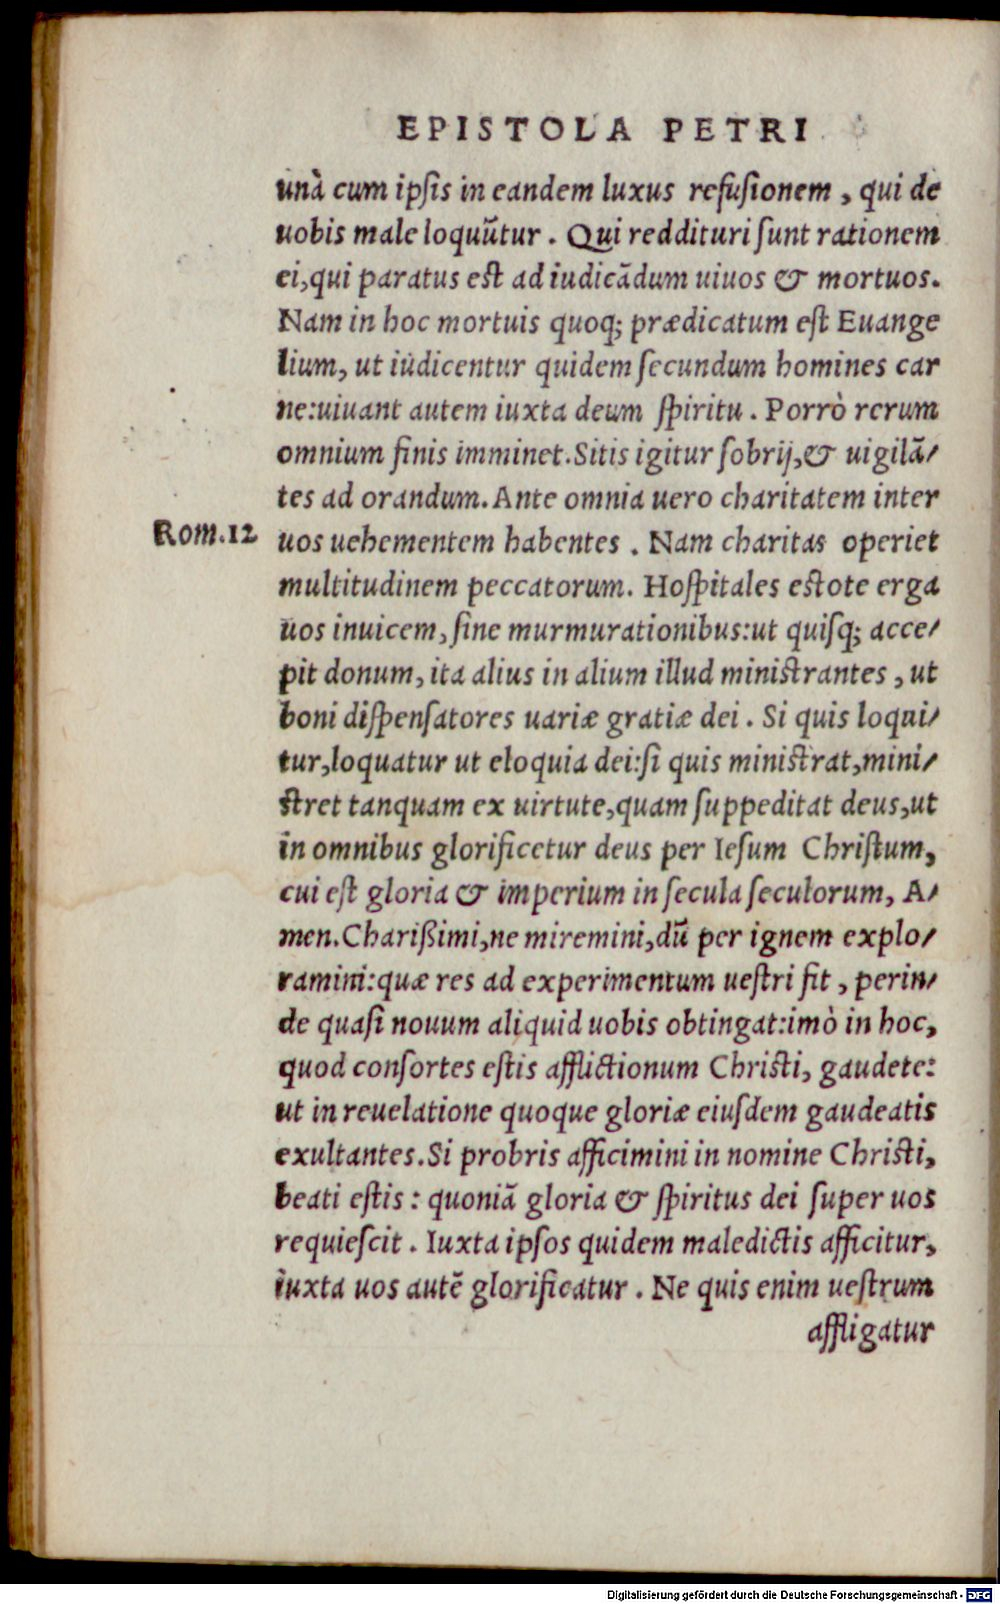 EPISTOLA PETRI
unà cum ipſis in eandem luxus refuſionem, qui de
uobis male loquũtur. Qui reddituri ſunt rationem
ei, qui paratus est ad iudicãdum uiuos & mortuos.
Nam in hoc mortuis quoq; prædicatum eſt Euange
lium, ut iudicentur quidem ſecundum homines car
ne: uiuant autem iuxta deum ſpiritu. Porrò rerum
omnium finis imminet. Sitis igitur ſobrij, & uigilã/
tes ad orandum. Ante omnia uero charitatem inter
Rom.12 uos uehementem habentes. Nam charitas operiet
multitudinem peccatorum. Hoſpitales estote erga
uos inuicem, ſine murmurationibus: ut quiſq; acce/
pit donum, ita alius in alium illud ministrantes, ut
boni diſpenſatores uariæ gratiæ dei. Si quis loqui/
tur, loquatur ut eloquia dei: ſi quis ministrat, mini/
stret tanquam ex uirtute, quam ſuppeditat deus, ut
in omnibus glorificetur deus per Ieſum Chriſtum,
cui eſt gloria & imperium in ſecula ſeculorum, A/
men. Charißimi, ne miremini, dũ per ignem explo/
ramini: quæ res ad experimentum ueſtri fit, perin/
de quaſi nouum aliquid uobis obtingat: imò in hoc,
quod conſortes eſtis afflictionum Christi, gaudete:
ut in reuelatione quoque gloriæ eiuſdem gaudeatis
exultantes. Si probris afficimini in nomine Christi,
beati estis: quoniã gloria & ſpiritus dei ſuper uos
requieſcit. Iuxta ipſos quidem maledictis afficitur,
iuxta uos autẽ glorificatur. Ne quis enim ueſtrum
affligatur
Digitalisierung gefördert durch die Deutsche Forschungsgemeinschaft - DFG